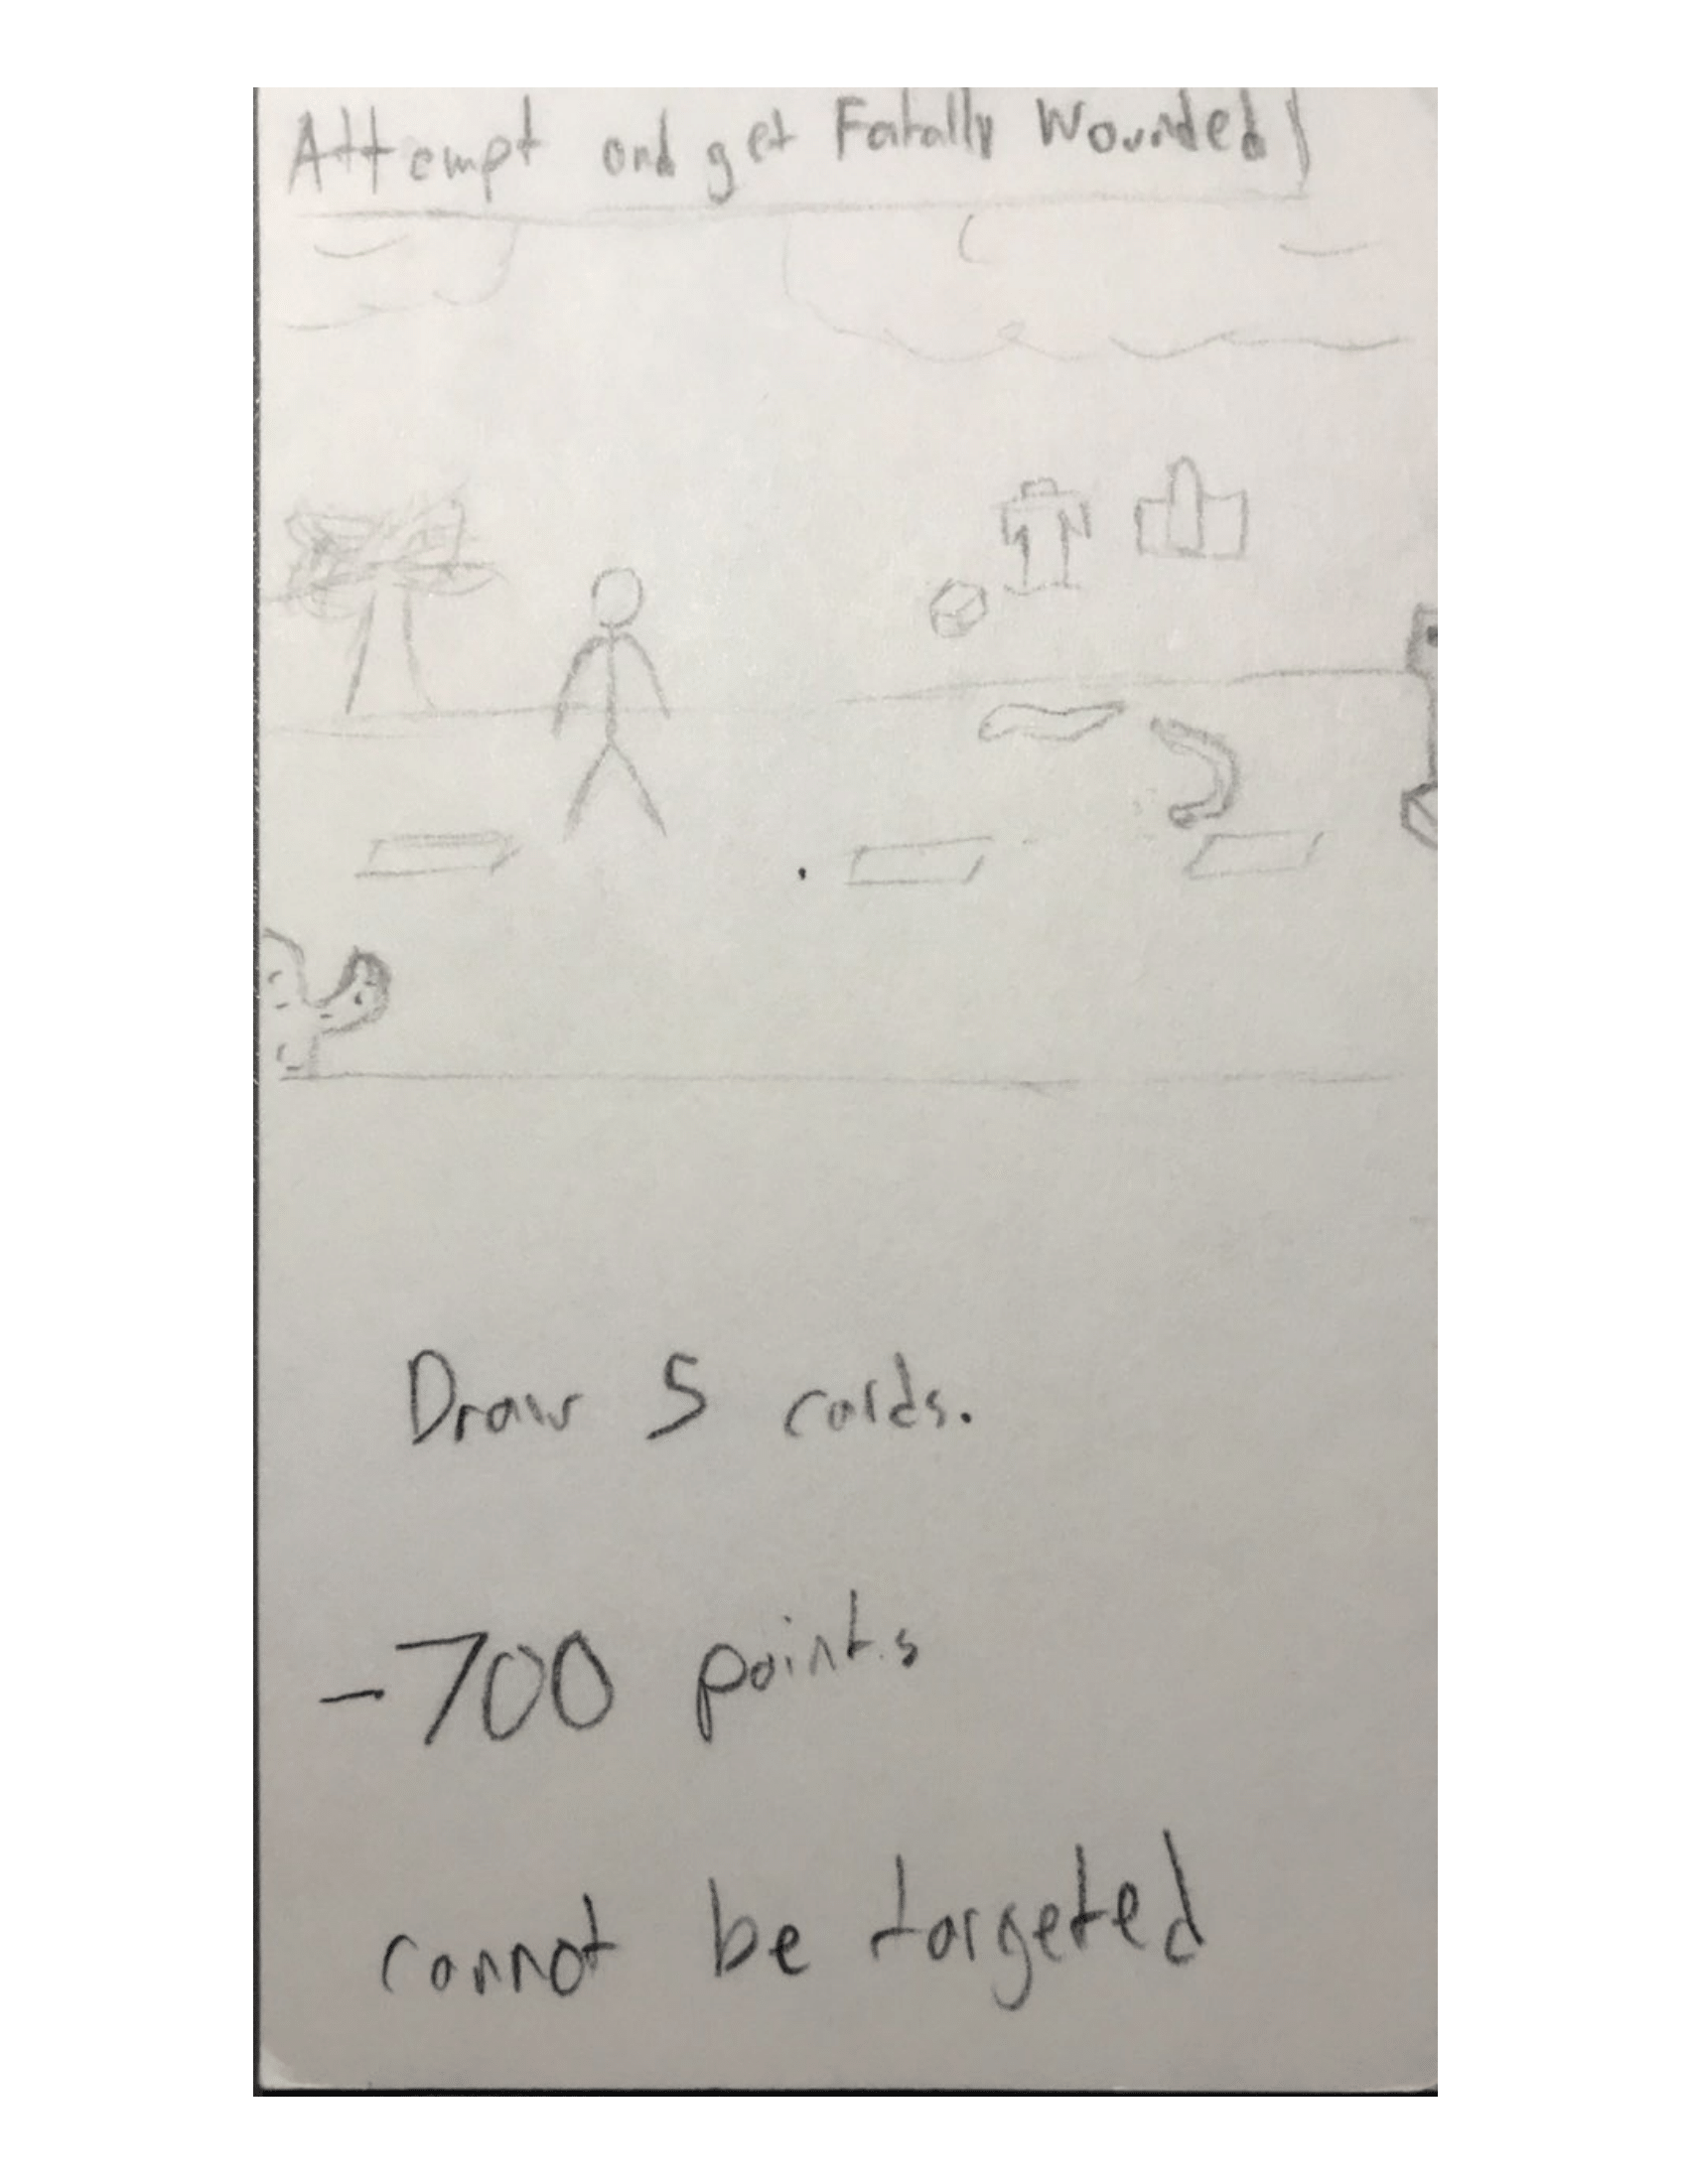 Attempt and get Fatally Wounded!
Draw 5 cards.
-700 points
cannot be targeted